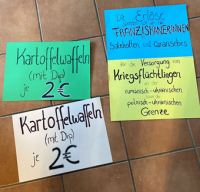 Kartoffelwaffeln
(mit Dip)
je 2€
Kartoffelwaffeln
(mit Dip)
je 2€
Die Erlöse
FRANZISKANERINNEN
Salzkotten und
für die Versorgung von
Kriegsflüchtlingen
an der
rumänisch-ukrainischen
polnisch-ukrainischen
Grenze